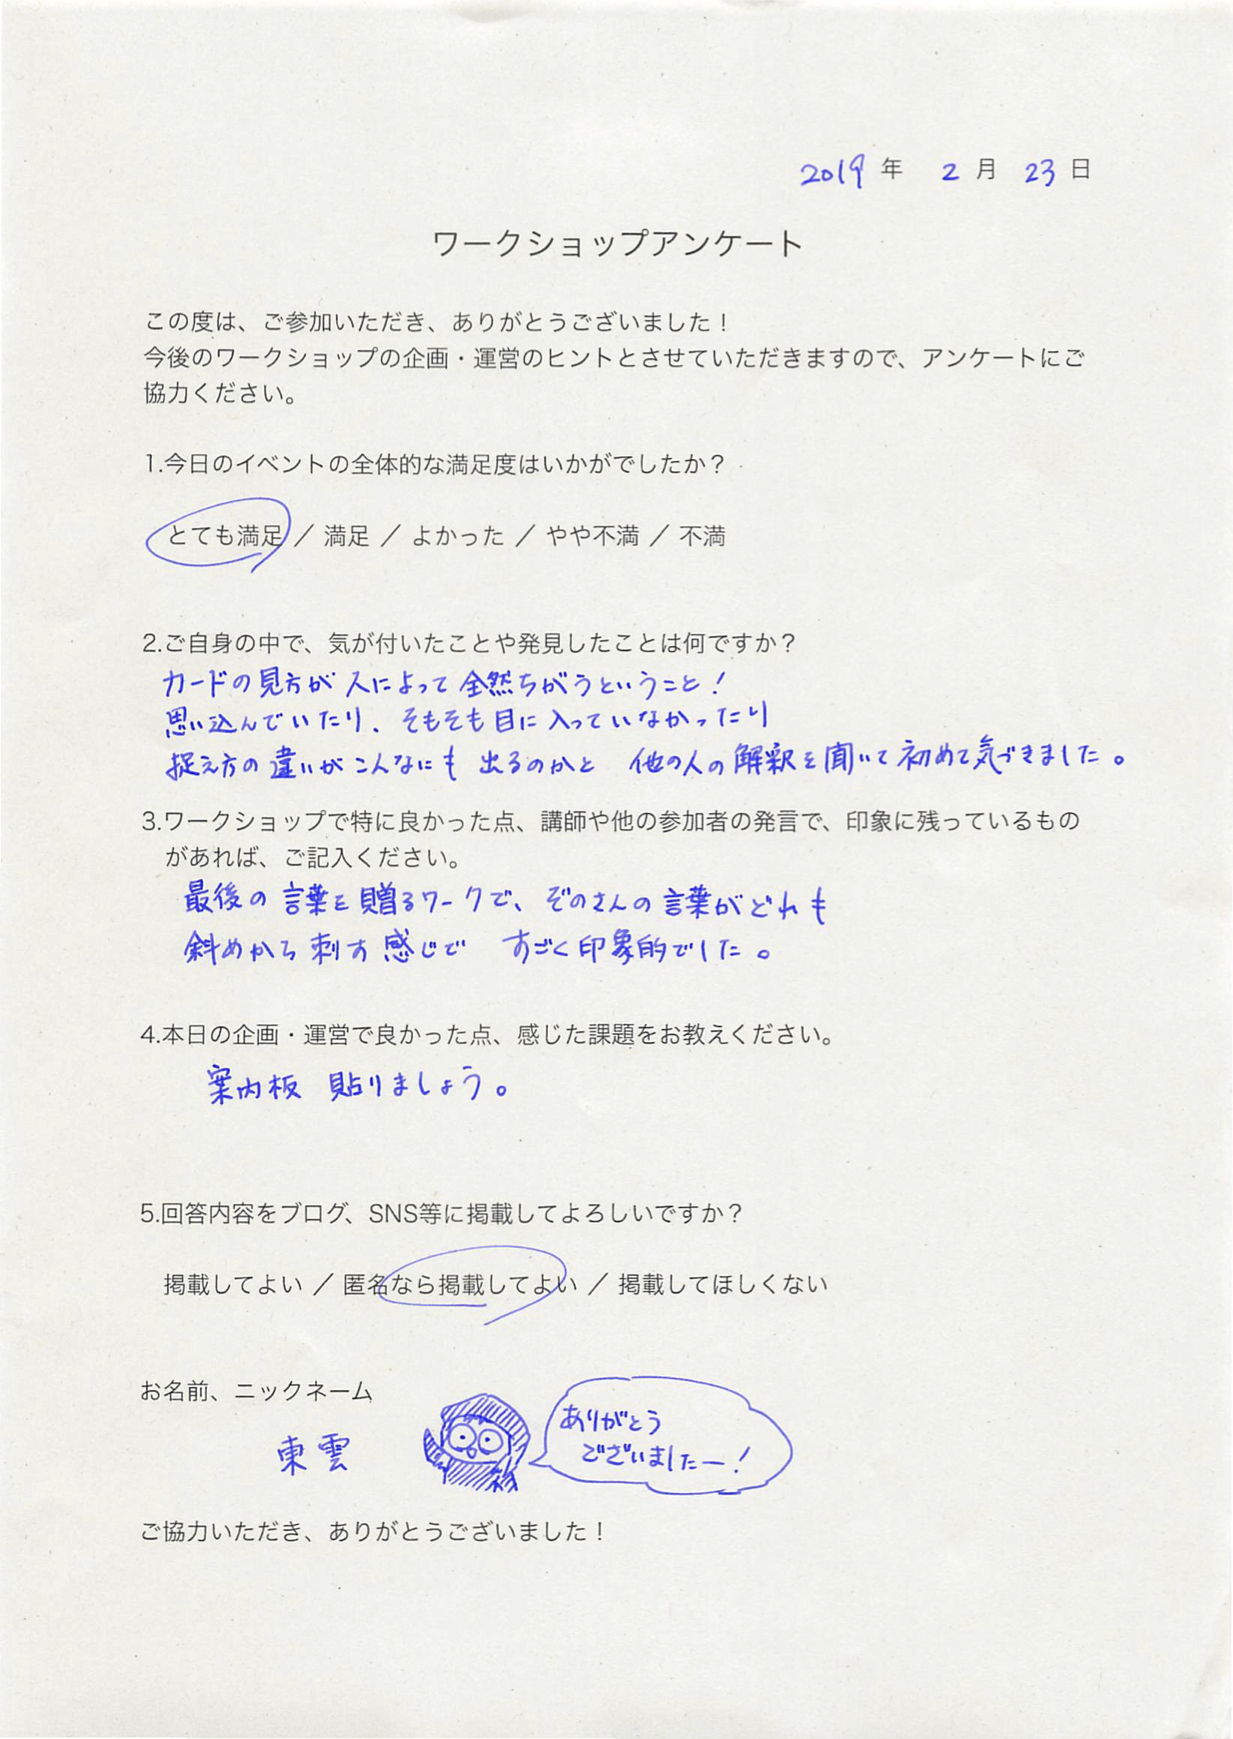 2019 年 2 月 23 日
ワークショップアンケート
この度は、ご参加いただき、ありがとうございました！
今後のワークショップの企画・運営のヒントとさせていただきますので、アンケートにご
協力ください。
1.今日のイベントの全体的な満足度はいかがでしたか？
とても満足 ／ 満足 ／ よかった ／ やや不満 ／ 不満
2.ご自身の中で、気が付いたことや発見したことは何ですか？
カードの見方が人によって全然ちがうということ！
思い込んでいたり、そもそも目に入っていなかったり
捉え方の違いがこんなにも出るのかと 他の人の解釈を聞いて初めて気づきました。
3.ワークショップで特に良かった点、講師や他の参加者の発言で、印象に残っているもの
があれば、ご記入ください。
最後の言葉を贈るワークで、ぞのさんの言葉がどれも
斜めから刺す感じで すごく印象的でした。
4.本日の企画・運営で良かった点、感じた課題をお教えください。
案内板 貼りましょう。
5.回答内容をブログ、SNS等に掲載してよろしいですか？
掲載してよい ／ 匿名なら掲載してよい ／ 掲載してほしくない
お名前、ニックネーム
東雲
ありがとう
ございましたー！
ご協力いただき、ありがとうございました！